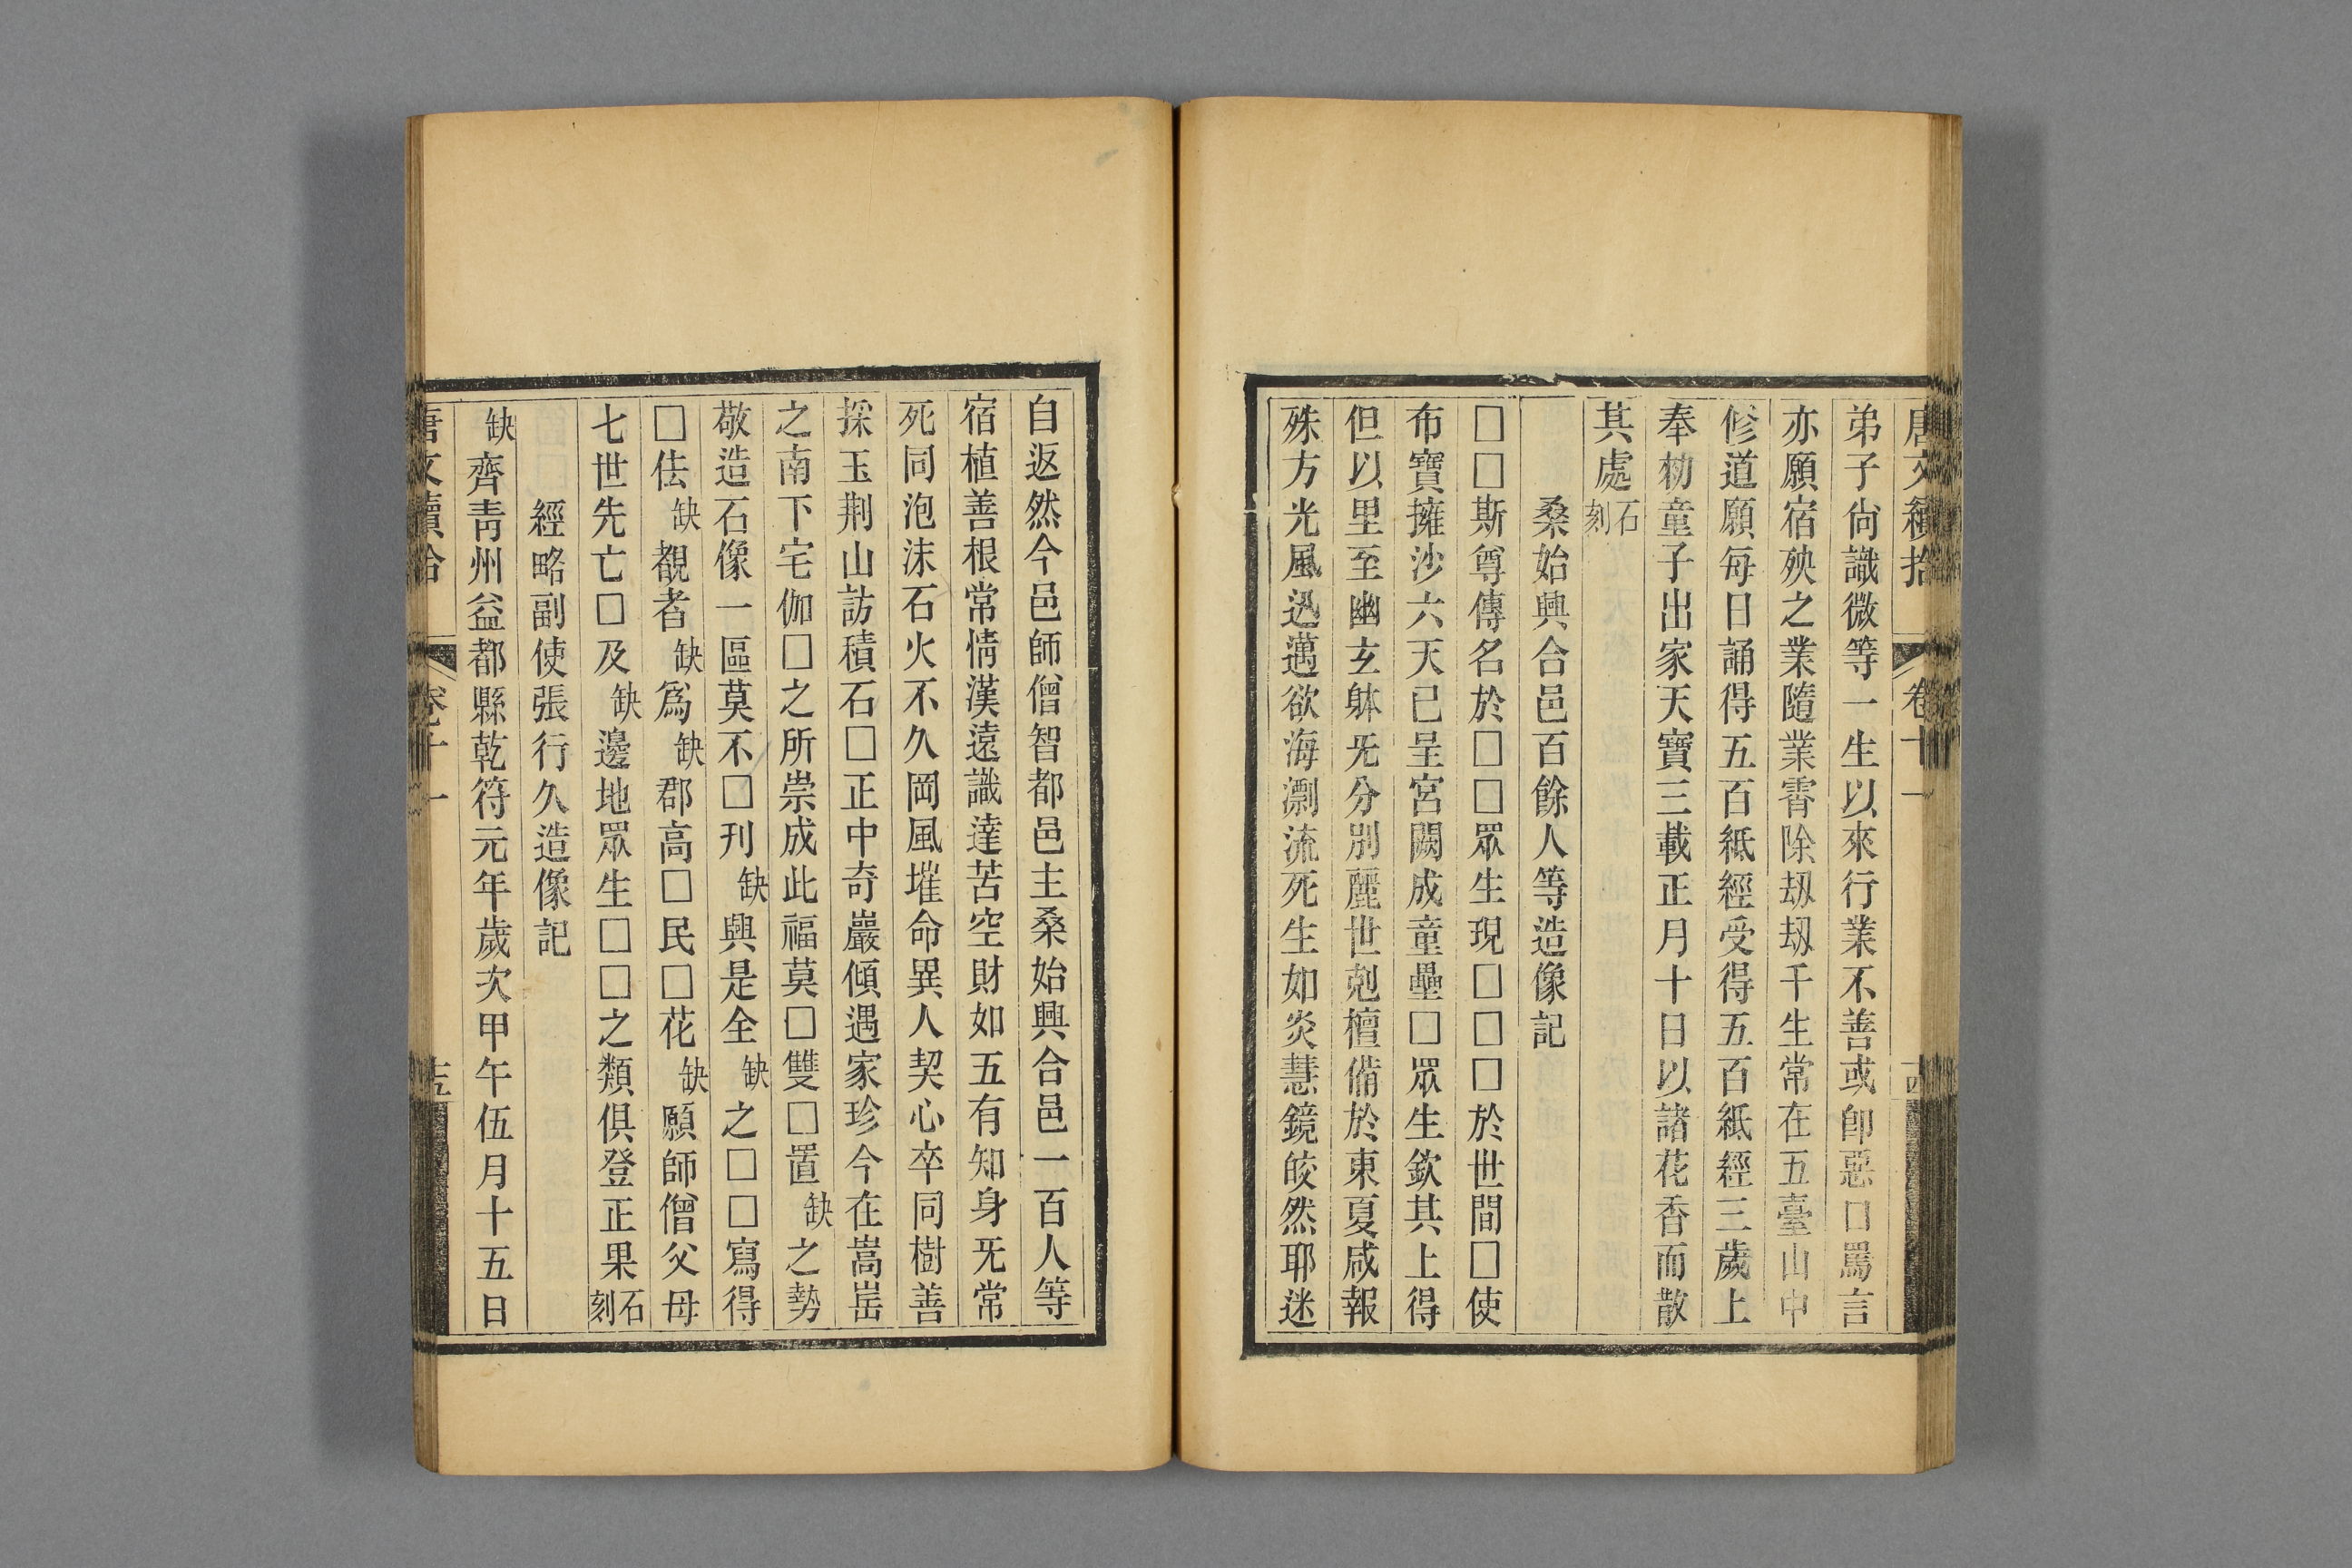 唐文續拾 卷十一 十四
弟子尙識微等一生以來行業不善或卽惡口罵言
亦願宿殃之業隨業霄除刼刼千生常在五臺山中
修道願每日誦得五百紙經受得五百紙經三歲上
奉勑童子出家天寶三載正月十日以諸花香而散
其處石刻
桑始興合邑百餘人等造像記
□□斯尊傳名於□□眾生現□□□於世間□使
布寶擁沙六天已呈宮闕成童壘□眾生欽其上得
但以里至幽玄躰旡分別麗世剋檀備於東夏咸報
殊方光風迅邁欲海漂流死生如炎慧鏡皎然耶迷
自返然今邑師僧智都邑主桑始興合邑一百人等
宿植善根常情漢遠識達苦空財如五有知身旡常
死同泡沫石火不久岡風摧命異人契心卒同樹善
採玉荆山訪積石□正中奇巖傾遇家珍今在嵩岳
之南下宅伽□之所崇成此福莫□雙□置缺之勢
敬造石像一區莫不□刊缺興是全缺之□□寫得
□佉缺覩者缺爲缺郡高□民□花缺願師僧父母
七世先亡□及缺邊地眾生□□之類俱登正果石刻
經略副使張行久造像記
缺齊靑州益都縣乾符元年歲次甲午伍月十五日
唐文續拾 卷十一 十五